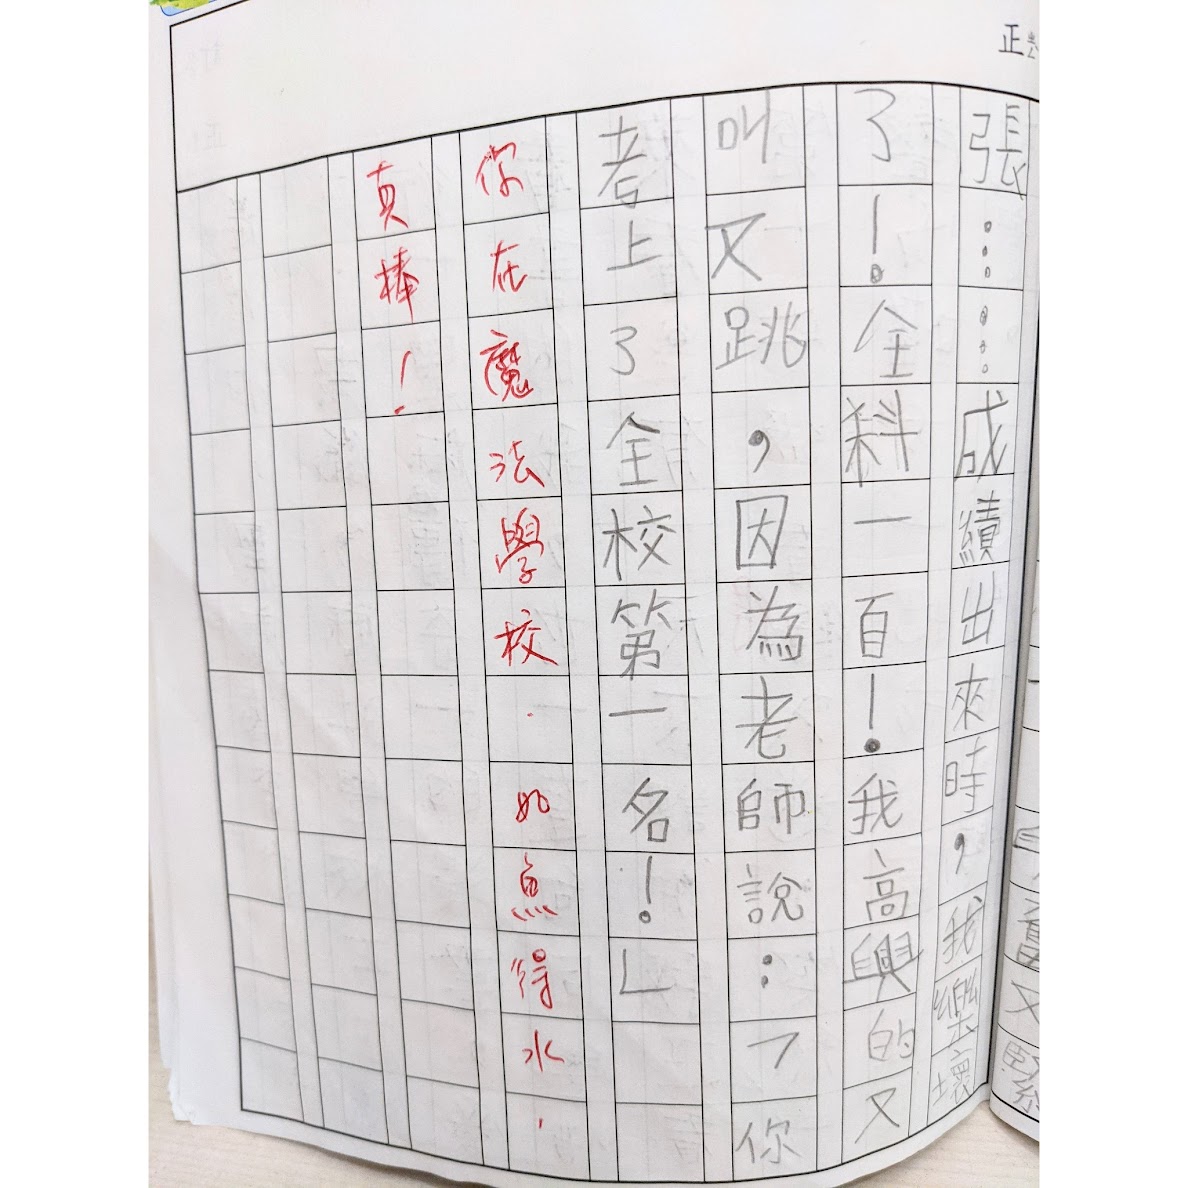 正
又緊
張……成績出來時，我樂壞
了！全科一百！我高興的又
叫又跳，因為老師說：「你
考上了全校第一名！」
你在魔法學校，如魚得水，
真棒！